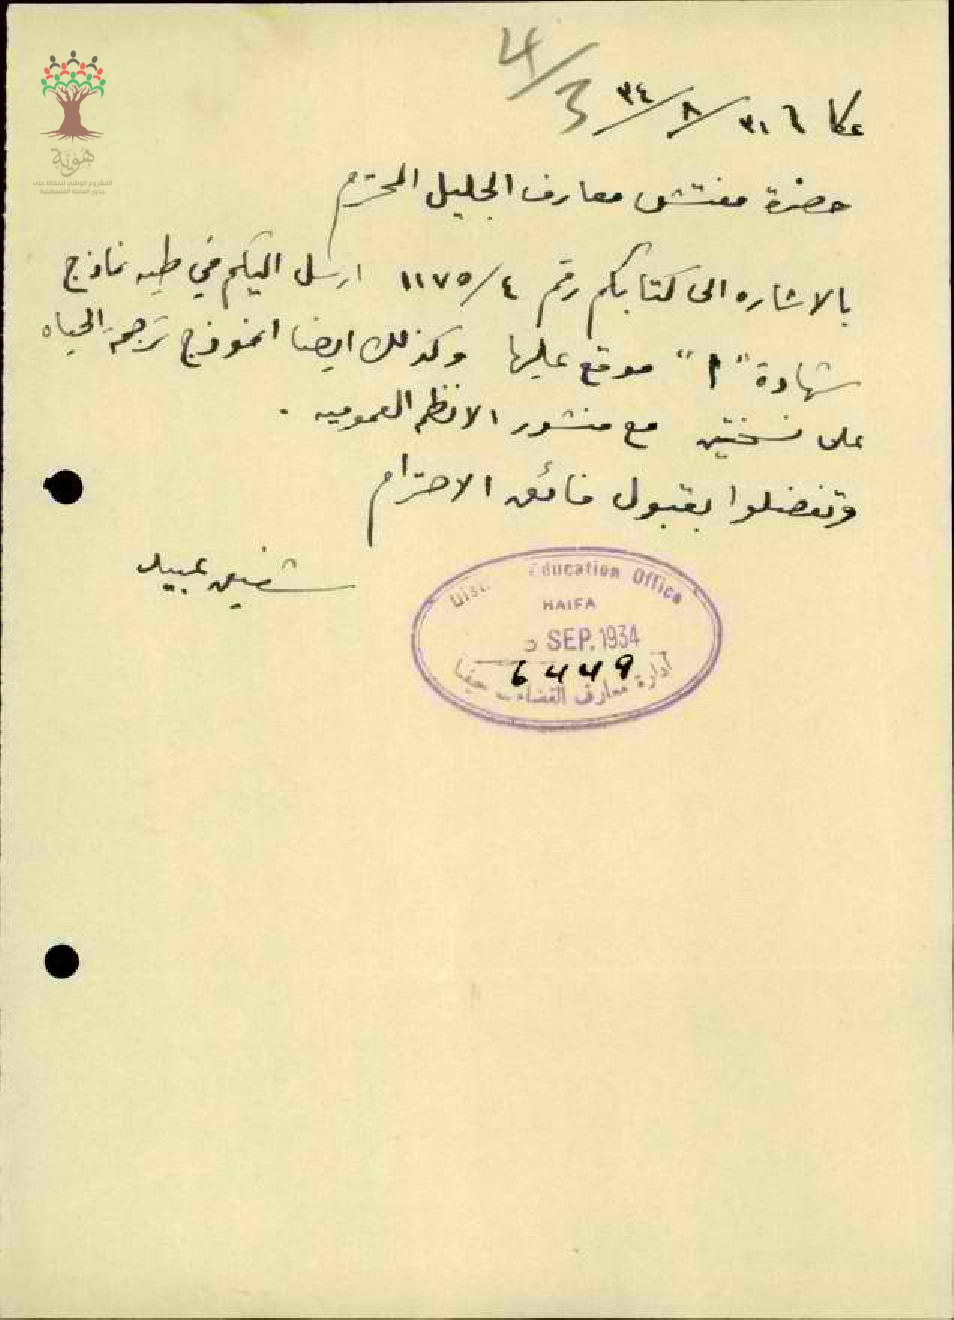 4/3
عكا ٦ ٣١/٨/٣٤
حضرة مفتش معارف الجليل المحترم
بالاشاره الى كتابكم رقم ٤/١١٧٥ ارسل اليكم في طيه نماذج
شهادة "أ" موقع عليها وكذلك ايضا انموذج ترجمة الحياه
على نسختين مع منشور الانظم العموميه .
وتفضلوا بقبول فائق الاحترام
شفيق عبيد
Education Office
HAIFA
SEP. 1934
6449
ادارة معارف القضاء حيفا
هُوِيَّة
المشروع الوطني للحفاظ على
جذور العائلة الفلسطينية